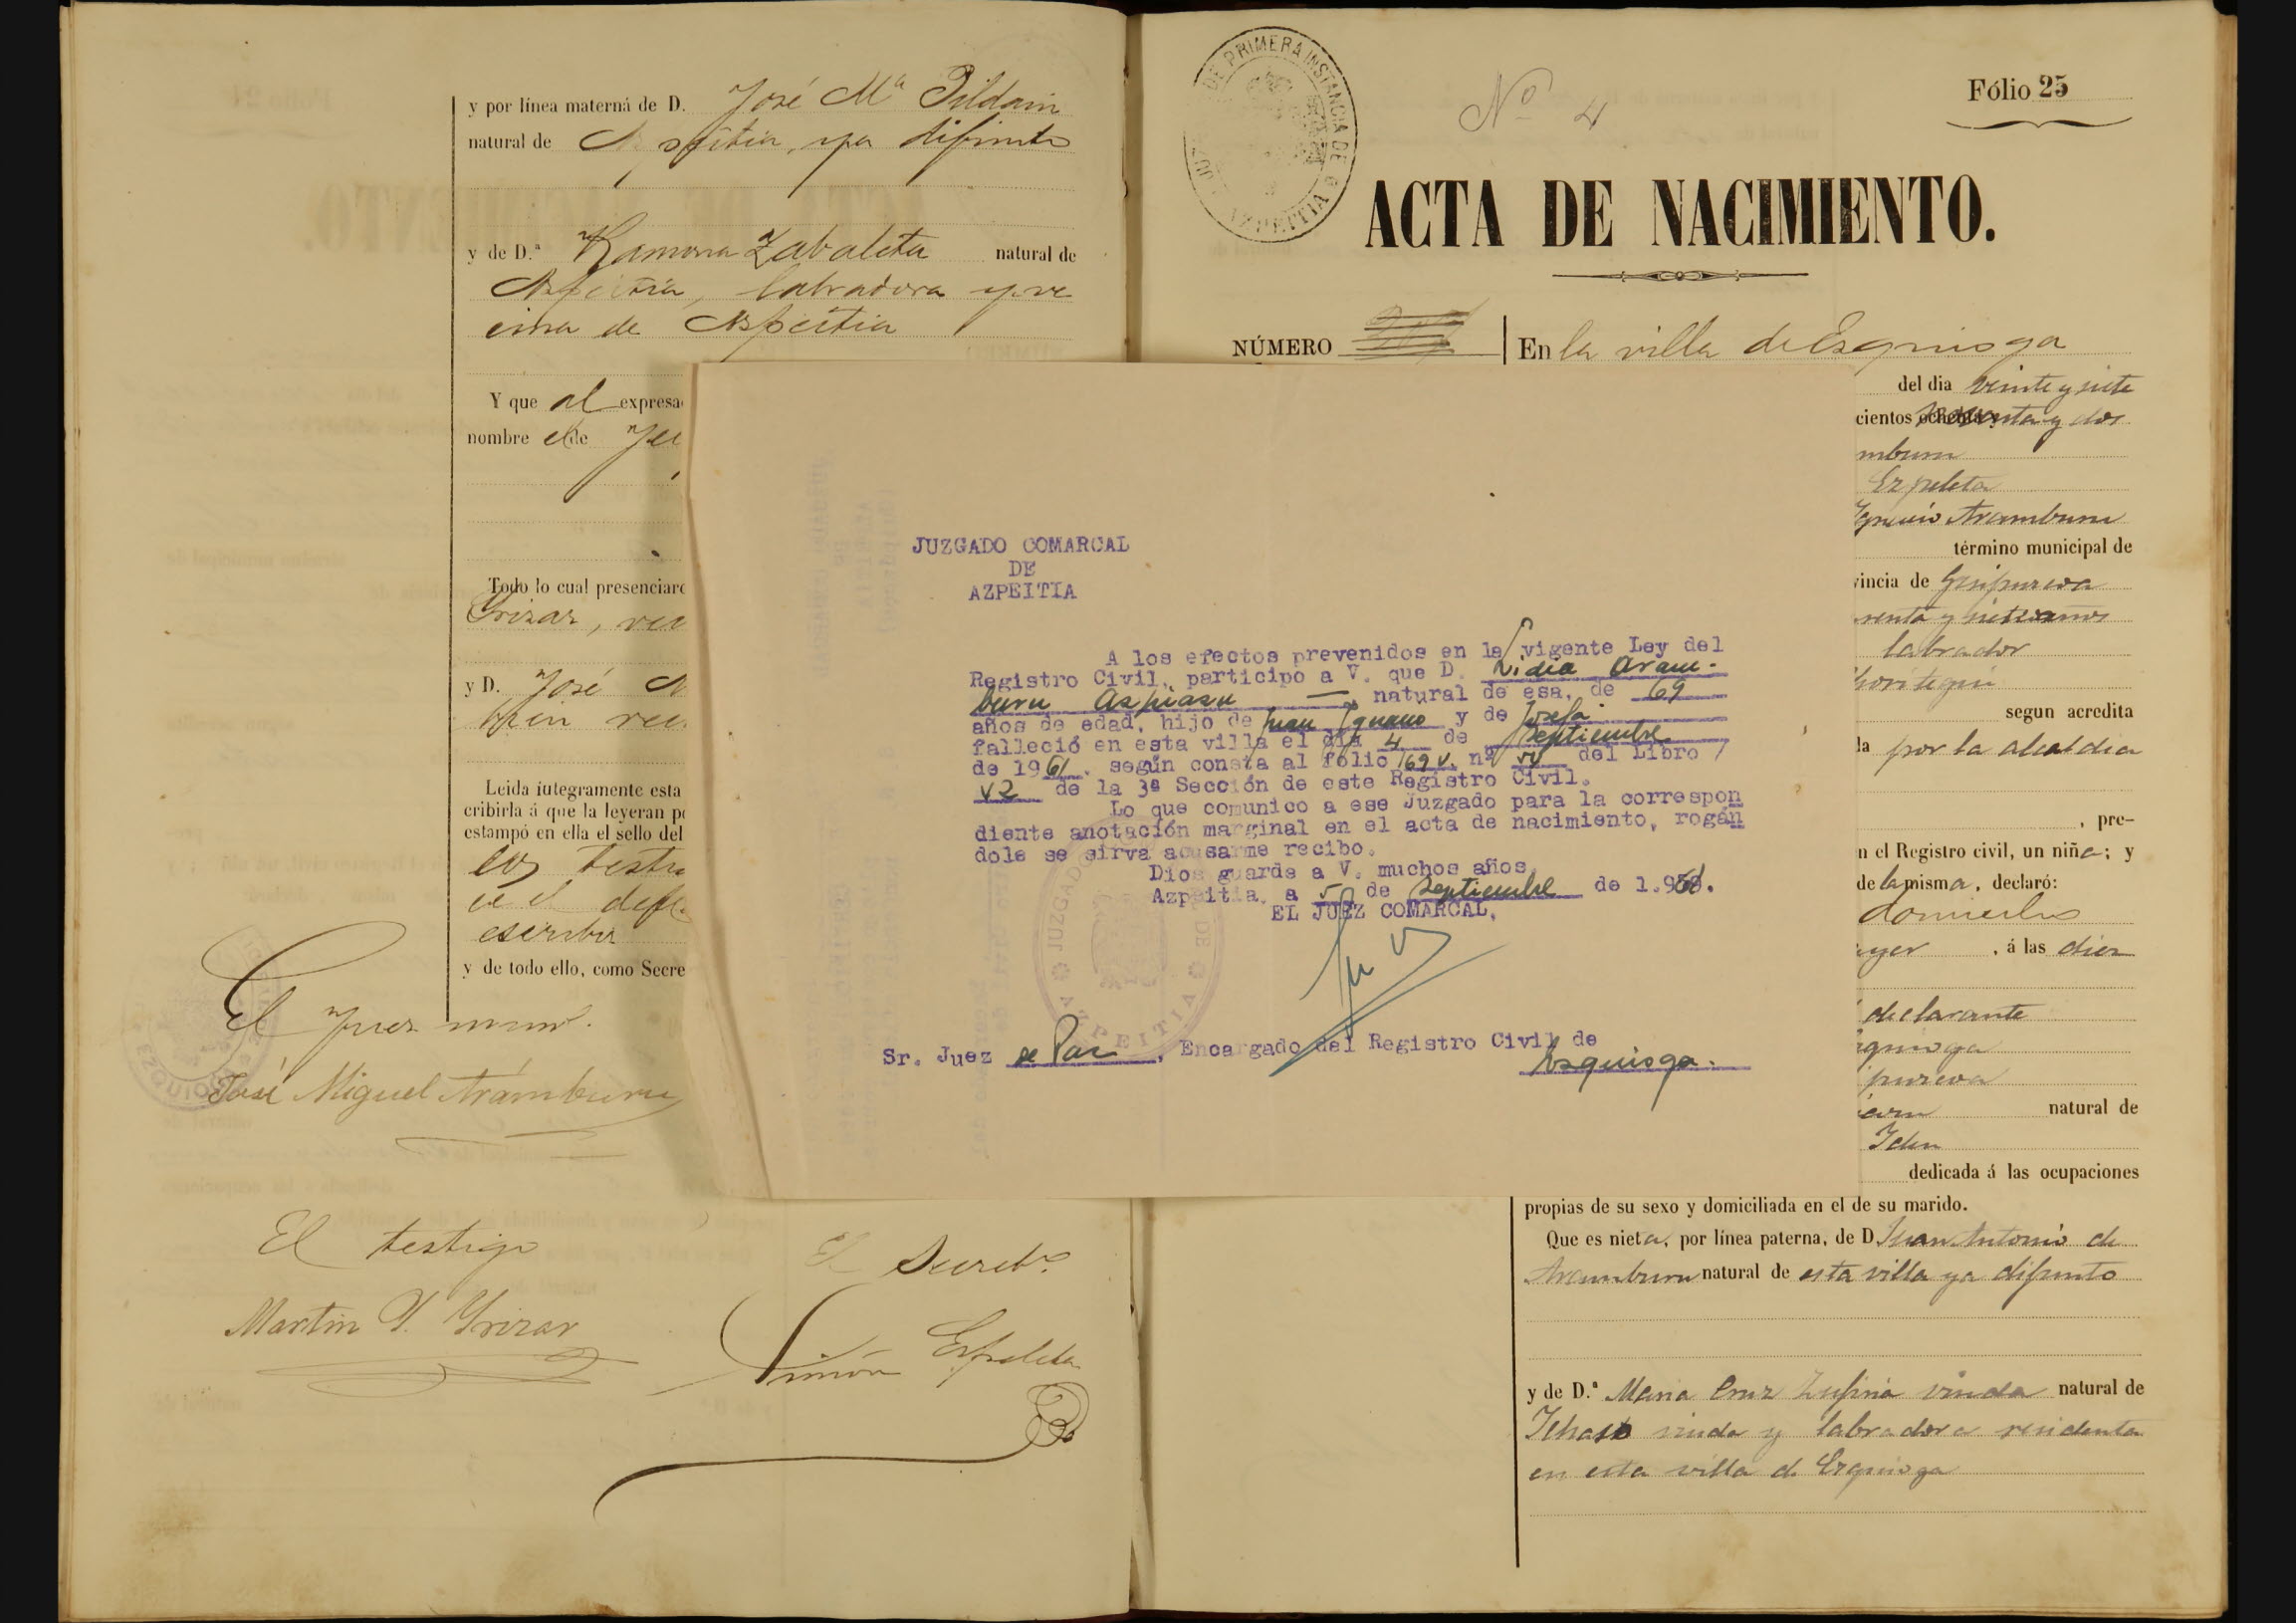 y por línea materná de D. José Mª Pildain
natural de Azpeitia, ya difunto
y de D.ª Ramona Zabaleta natural de
Azpeitia, labradora y ve
cina de Azpeitia
Y que al expresa
nombre de
Todo lo cual presenciaro
Yrizar, vec
y D. José M
vec
Leida integramente esta
cribirla á que la leyeran p
estampó en ella el sello del
los testi
escribir
y de todo ello, como Secre
El Juez mun.
José Miguel Arámburu
El testigo
Martin Y. Yrizar
El Secret.º
Simón Ezpeleta
JUZGADO COMARCAL
DE
AZPEITIA
A los efectos prevenidos en la vigente Ley del
Registro Civil, participo a V. que D. Lidia Aram-
buru Azpiazu — natural de esa, de 69
años de edad, hijo de Juan Ignacio y de Josefa
falleció en esta villa el día 4 de Septiembre
de 1961, según consta al folio 169 v. nº del Libro
V2 de la 3ª Sección de este Registro Civil.
Lo que comunico a ese Juzgado para la correspon
diente anotación marginal en el acta de nacimiento, rogán
dole se sirva acusarme recibo.
Dios guarde a V. muchos años
Azpeitia, a 5 de Septiembre de 1.961.
EL JUEZ COMARCAL,
Sr. Juez de Paz, Encargado del Registro Civil de
Ezquioga.
JUZGADO DE AZPEITIA
DE PRIMERA INSTANCIA DE AZPEITIA
Nº 4
Fólio 25
ACTA DE NACIMIENTO.
NÚMERO
En la villa de Ezquioga
del dia veinte y siete
cientos noventa y dos
mburu
Ezpeleta
Ignacio Aramburu
término municipal de
vincia de Guipuzcoa
enta y siete años
labrador
segun acredita
la por la alcaldia
, pre-
n el Registro civil, un niña; y
de la misma, declaró:
domicilio
ayer, á las diez
declarante
zquioga
puzcoa
natural de
Iden
dedicada á las ocupaciones
propias de su sexo y domiciliada en el de su marido.
Que es nieta, por línea paterna, de D Juan Antonio de
Aramburu natural de esta villa ya difunto
y de D.ª Maria Cruz Zufiria viuda natural de
Ichaso viuda y labradora residenta
en esta villa de Ezquioga